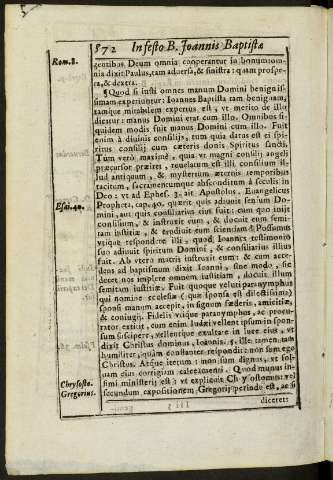 872 In festo B. Joannis Baptistæ
Rom. 8.
gentibus Deum omnia cooperantur in bonum: omnia dixit Paulus, tam aduersa, & sinistra: quam prospera, & dextera.
¶ Quod si iusti omnes manum Domini benignissimam experiuntur: Ioannes Baptista tam benignam, tamque mirabilem expertus est, vt merito de illo dicatur: manus Domini erat cum illo. Omnibus siquidem modis fuit manus Domini cum illo. Fuit enim à diuinis consilijs, tum quia datus est ei spiritus consilij cum cæteris donis Spiritus sancti.
Tum verò maximè, quia vt magni consilij angeli præcursor præiret, reuelatum est illi consilium illud antiquum, & mysterium æternis temporibus tacitum, sacramentumque absconditum à sæculis in
Deo: vt ad Ephes. 3. ait Apostolus. Euangelicus
Esai. 40.
Propheta, cap. 40. quærit quis adiuuit sensum Domini, aut quis consiliarius eius fuit: cum quo inijt consilium, & instruxit eum, & docuit eum semitam iustitiæ, & erudiuit eum scientiam? Possumus vtique respondere illi, quod Ioannes testimonio suo adiuuit spiritum Domini, & consiliarius illius fuit.
semitam iustitiæ. Fuit quoque veluti paranymphus qui nomine ecclesiæ (quæ sponsa est dilectissima) sponsi manum accepit, in signum fœderis, amicitiæ, & coniugij. Fidelis vtique paranymphus, ac procurator extitit, cum enim Iudæi vellent ipsum in sponsum suscipere, vellentque exultare in luce eius, vt dixit Christus dominus, Ioannis. 5. ille tamen, tam humiliter, quàm constanter respondit: non sum ego Christus. Atque iterum: non sum dignus, vt soluam eius corrigiam calceamenti. Quod munus infimi ministerij est: vt
Chrysosto.
Gregorius.
secundum expositionem Gregorij perinde est, ac si
diceret: